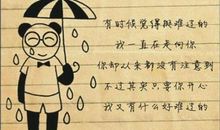 有时候觉得挺难过的
我一直在关心你
你却从来都没有注意到
不过其实只要你开心
我又有什么好难过的